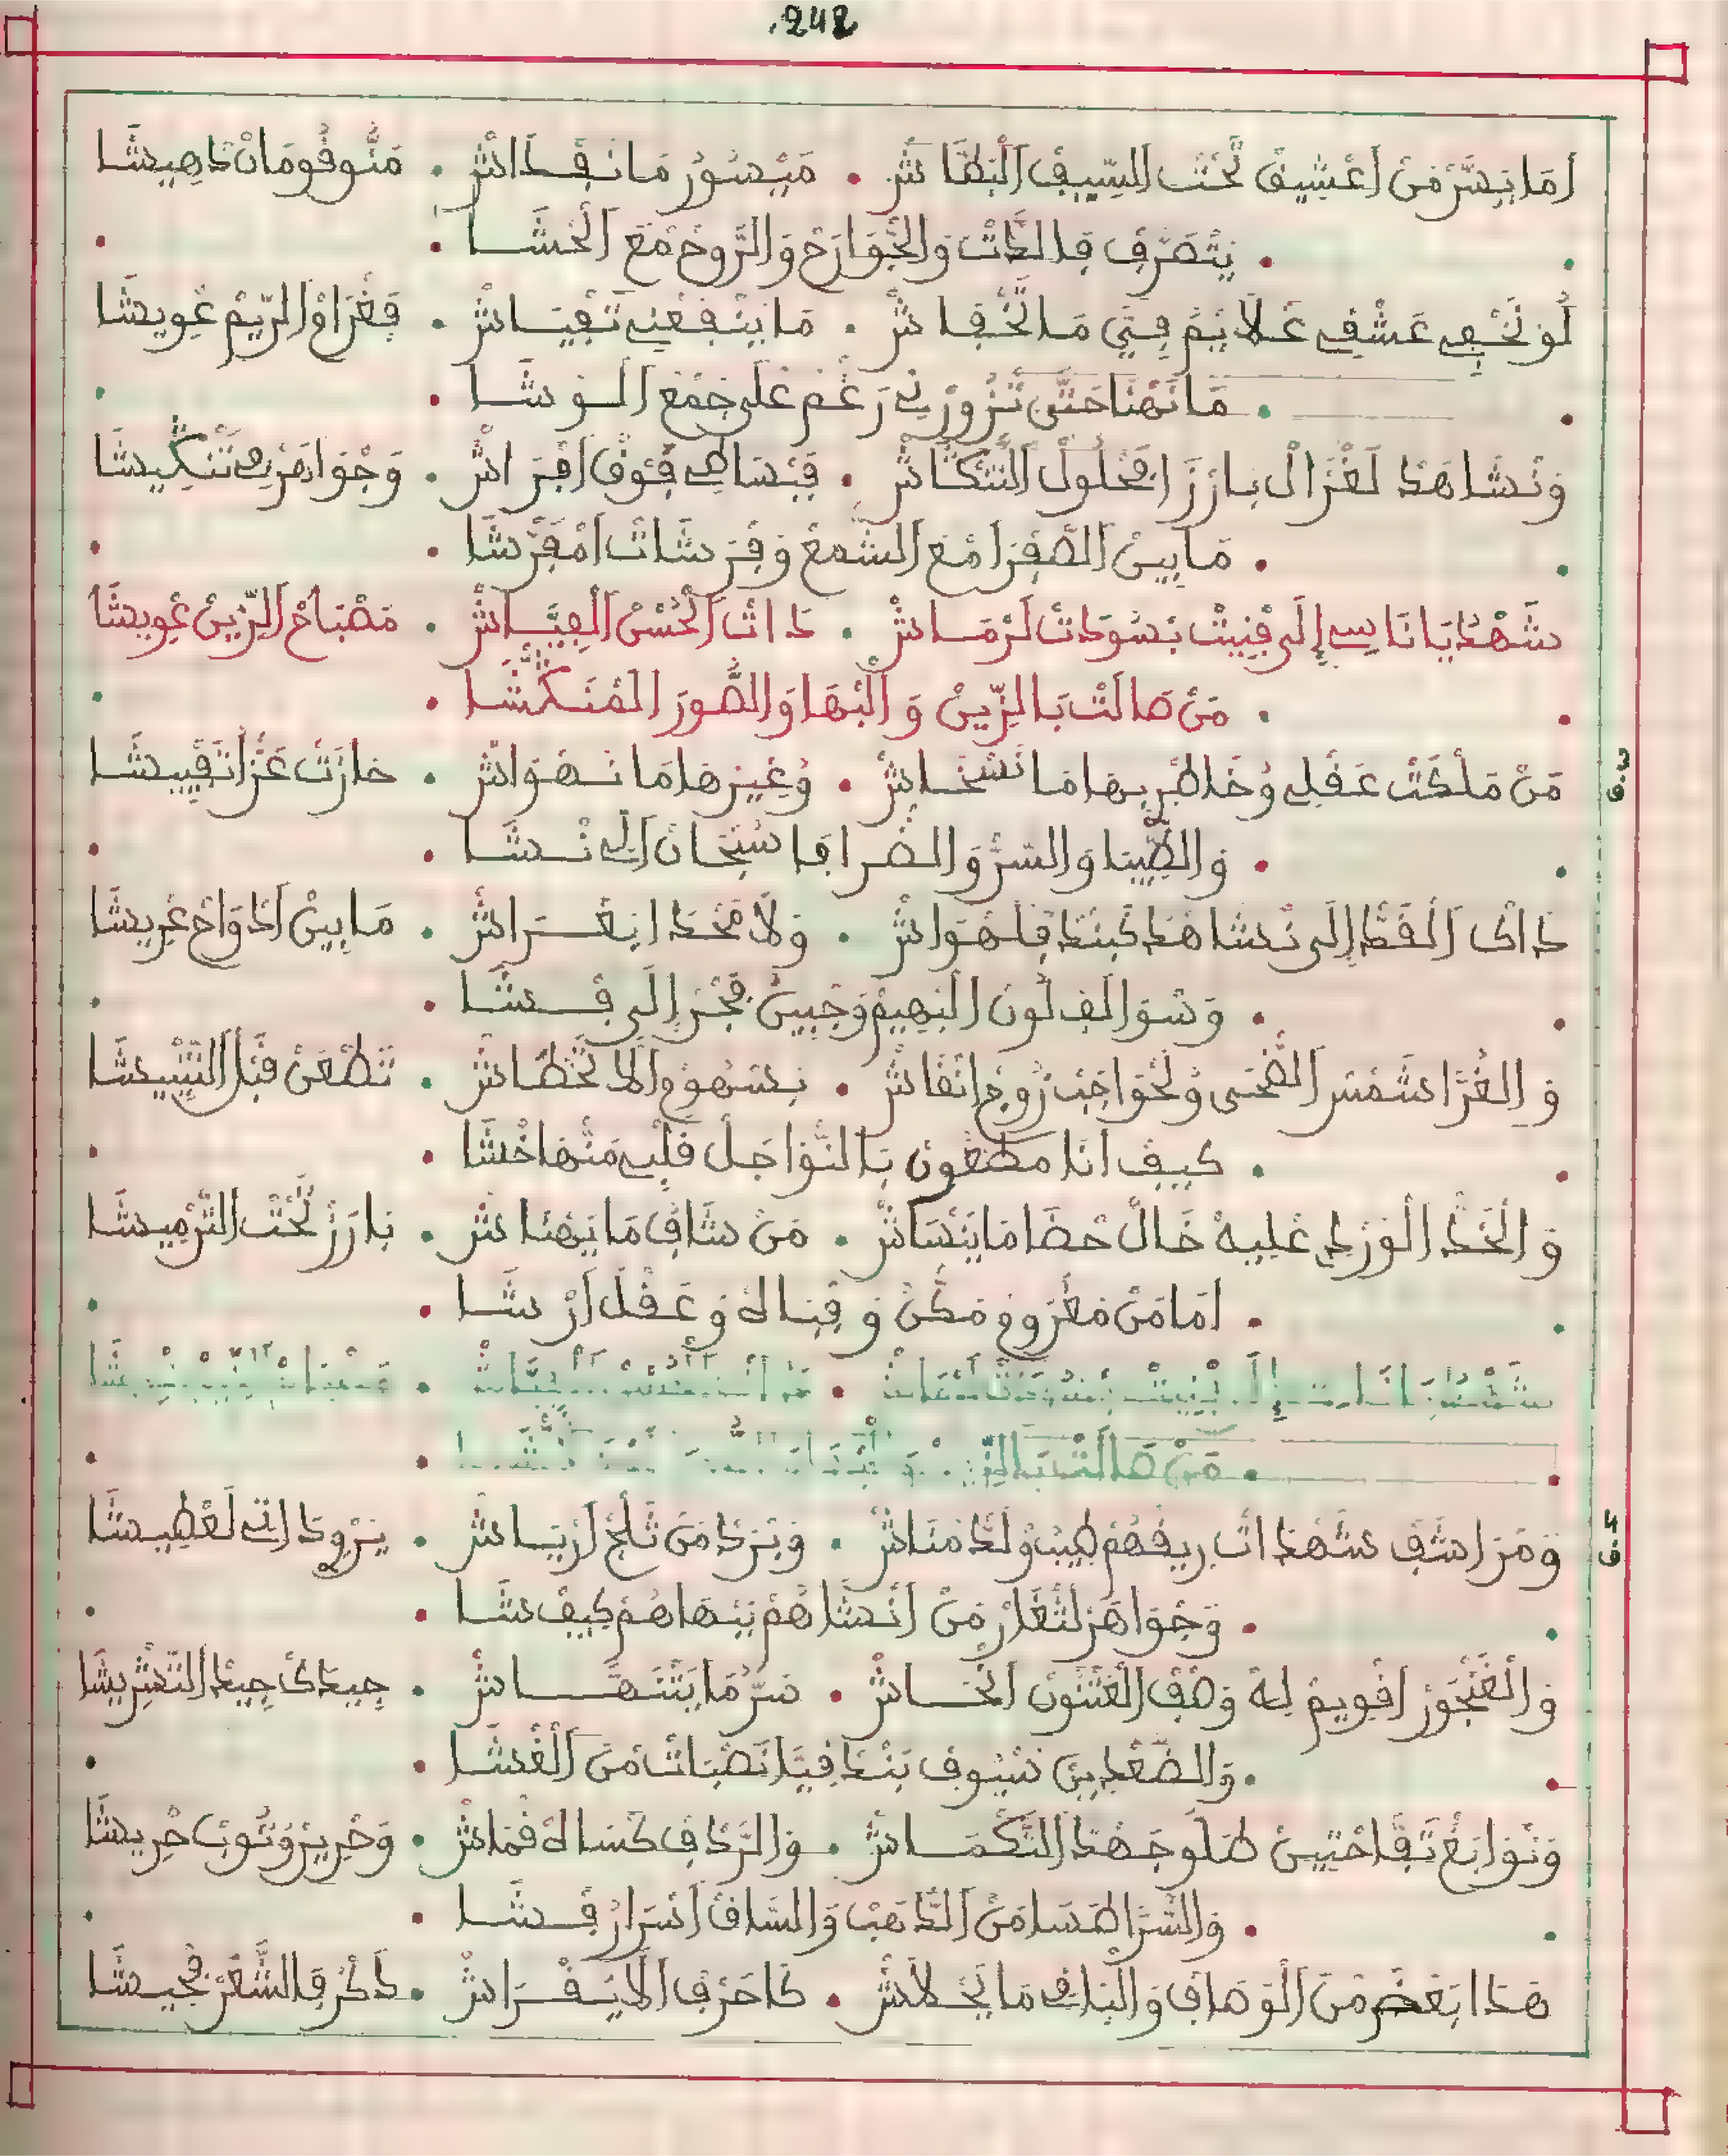 .242
أما يسر من اعشيق تحت السيف البطاش • ميسور ما نفداش • منوقومان داهيشا
• يتصرف فالدات والجوارح والروح مع الحشا •
لو نخفي عشقي علايم فيي ما تخفاش • ما ينفعني تفياش • فغرام الريم عويشا
• ما نهنا حتى تزورني رغم على جمع الوشا •
ونشاهد لغزال بارز امحلول التكاش • فبساطي فوق افراش • وجواهري تنكيشا
• مابين الصفرا مع الشمع وفرشات امفرشا •
شهدو يا ناسي إلى فنيت بسودت لرماش • دات الحسن الفياش • مصباح الزين عويشا
• من صالت بالزين و البها والصور المنكشا •
من ملكت عقلي وخاطري بها ما نسخاش • وغيرها ما نهواش • حازت عز اتقييشا
• والطيبا والسر والصرافا سبحان الي نشا •
داك القد إلى نشاهد كبند فلهواش • ولا محدا يغراش • مابين ادواح عريشا
• وسوالف لون البهيم وجبين فجر إلى فشا •
و الغرا شمس الضحى ولحواجب زوج انقاش • بسهوم الا تخطاش • تطعن قبل التنبيشا
• كيف انا مطعون بالنواجل قلبي منها خشا •
والخد الوردي عليه خال حضا ما ينساش • من شاف ما يهناش • بارز تحت الترميشا
• اما من مغروم مكن و فناله و عقل ارشا •
شهدو يا ناسي إلى فنيت بسودت لرماش • دات الحسن الفياش • مصباح الزين عويشا
• من صالت بالزين و البها والصور المنكشا •
ومراشف شهدات ريقهم طيب ولد مناش • وبرد من ثلج ارياش • يروي داتي لعطيشا
• وجواهر لثغار من انشاهم بيهاهم كيف شا •
والغنجور اقويم له وصف العثنون انحاش • سر ما يتنهاش • جيداك جيد التعشريشا
• والصعدين سيوف بندافيا نصبات من الغشا •
ونوابغ تفاحتين طلو جهد التكماش • والردف كساه قماش • وحرير وتوب حريشا
• والسرا طسا من الدهب والساق اسرار فشا •
هدا بعض من الوصاف والباقي ما يحلاش • كاحرف الا يقراش • دكر فالشعر فجيشا